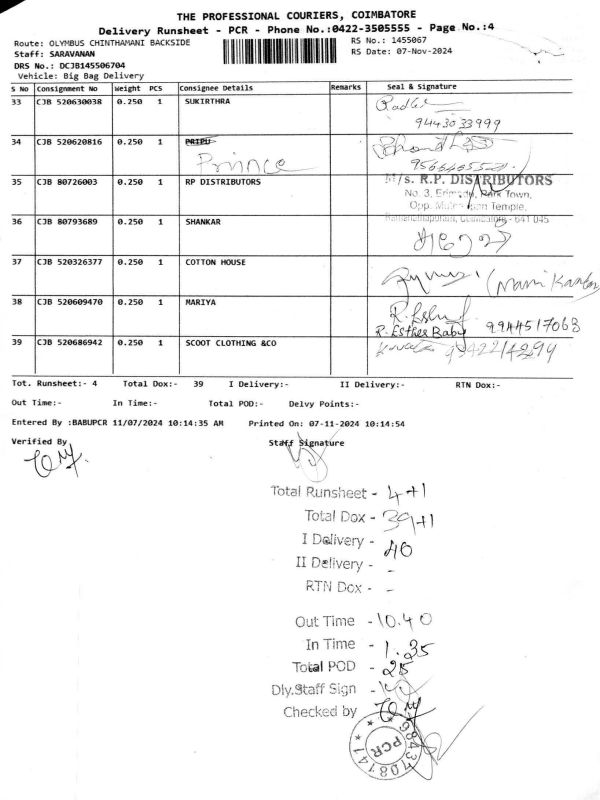 THE PROFESSIONAL COURIERS, COIMBATORE
Delivery Runsheet - PCR - Phone No.:0422-3505555 - Page No.:4
Route: OLYMBUS CHINTHAMANI BACKSIDE
RS No.: 1455067
Staff: SARAVANAN
RS Date: 07-Nov-2024
DRS No.: DCJB145506704
Vehicle: Big Bag Delivery
S No Consignment No Weight PCS Consignee Details Remarks Seal & Signature
33 CJB 520630038 0.250 1 SUKIRTHRA
9443033999
34 CJB 520620816 0.250 1
Prince
35 CJB 80726003 0.250 1 RP DISTRIBUTORS M/s. R.P. DISTRIBUTORS
No. 3, Park Town,
Opp. Temple,
Coimbatore - 641 045
36 CJB 80793689 0.250 1 SHANKAR
37 CJB 520326377 0.250 1 COTTON HOUSE
38 CJB 520609470 0.250 1 MARIYA
R. Esther Baby 9944517063
39 CJB 520686942 0.250 1 SCOOT CLOTHING &CO
9942214294
Tot. Runsheet:- 4 Total Dox:- 39 I Delivery:- II Delivery:- RTN Dox:-
Out Time:- In Time:- Total POD:- Delvy Points:-
Entered By :BABUPCR 11/07/2024 10:14:35 AM Printed On: 07-11-2024 10:14:54
Verified By Staff Signature
Total Runsheet - 4+1
Total Dox - 39+1
I Delivery - 40
II Delivery - -
RTN Dox - -
Out Time - 10.40
In Time - 1.35
Total POD - 25
Dly.Staff Sign -
Checked by
PCR
9843708141